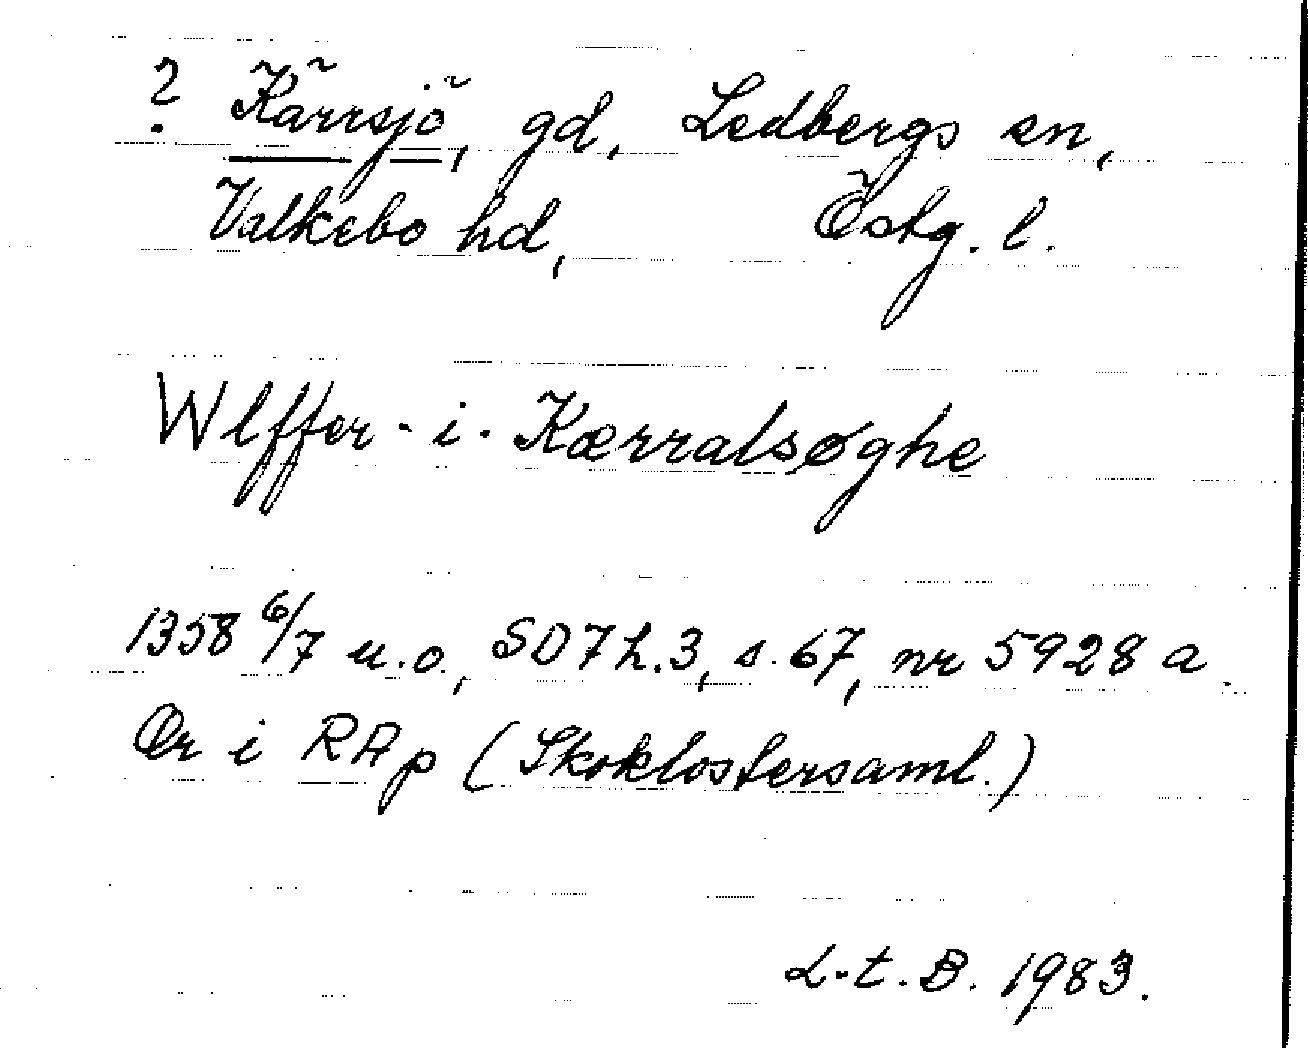 ? Kärrsjö, gd, Ledbergs sn,
Valkebo hd, Östg. l.
Wlffer · i · Kærralsøghe
1358 6/7 u.o., SD 7 h.3, s. 67, nr 5928 a.
Or i RAp (Skoklostersaml.)
L.t.B. 1983.